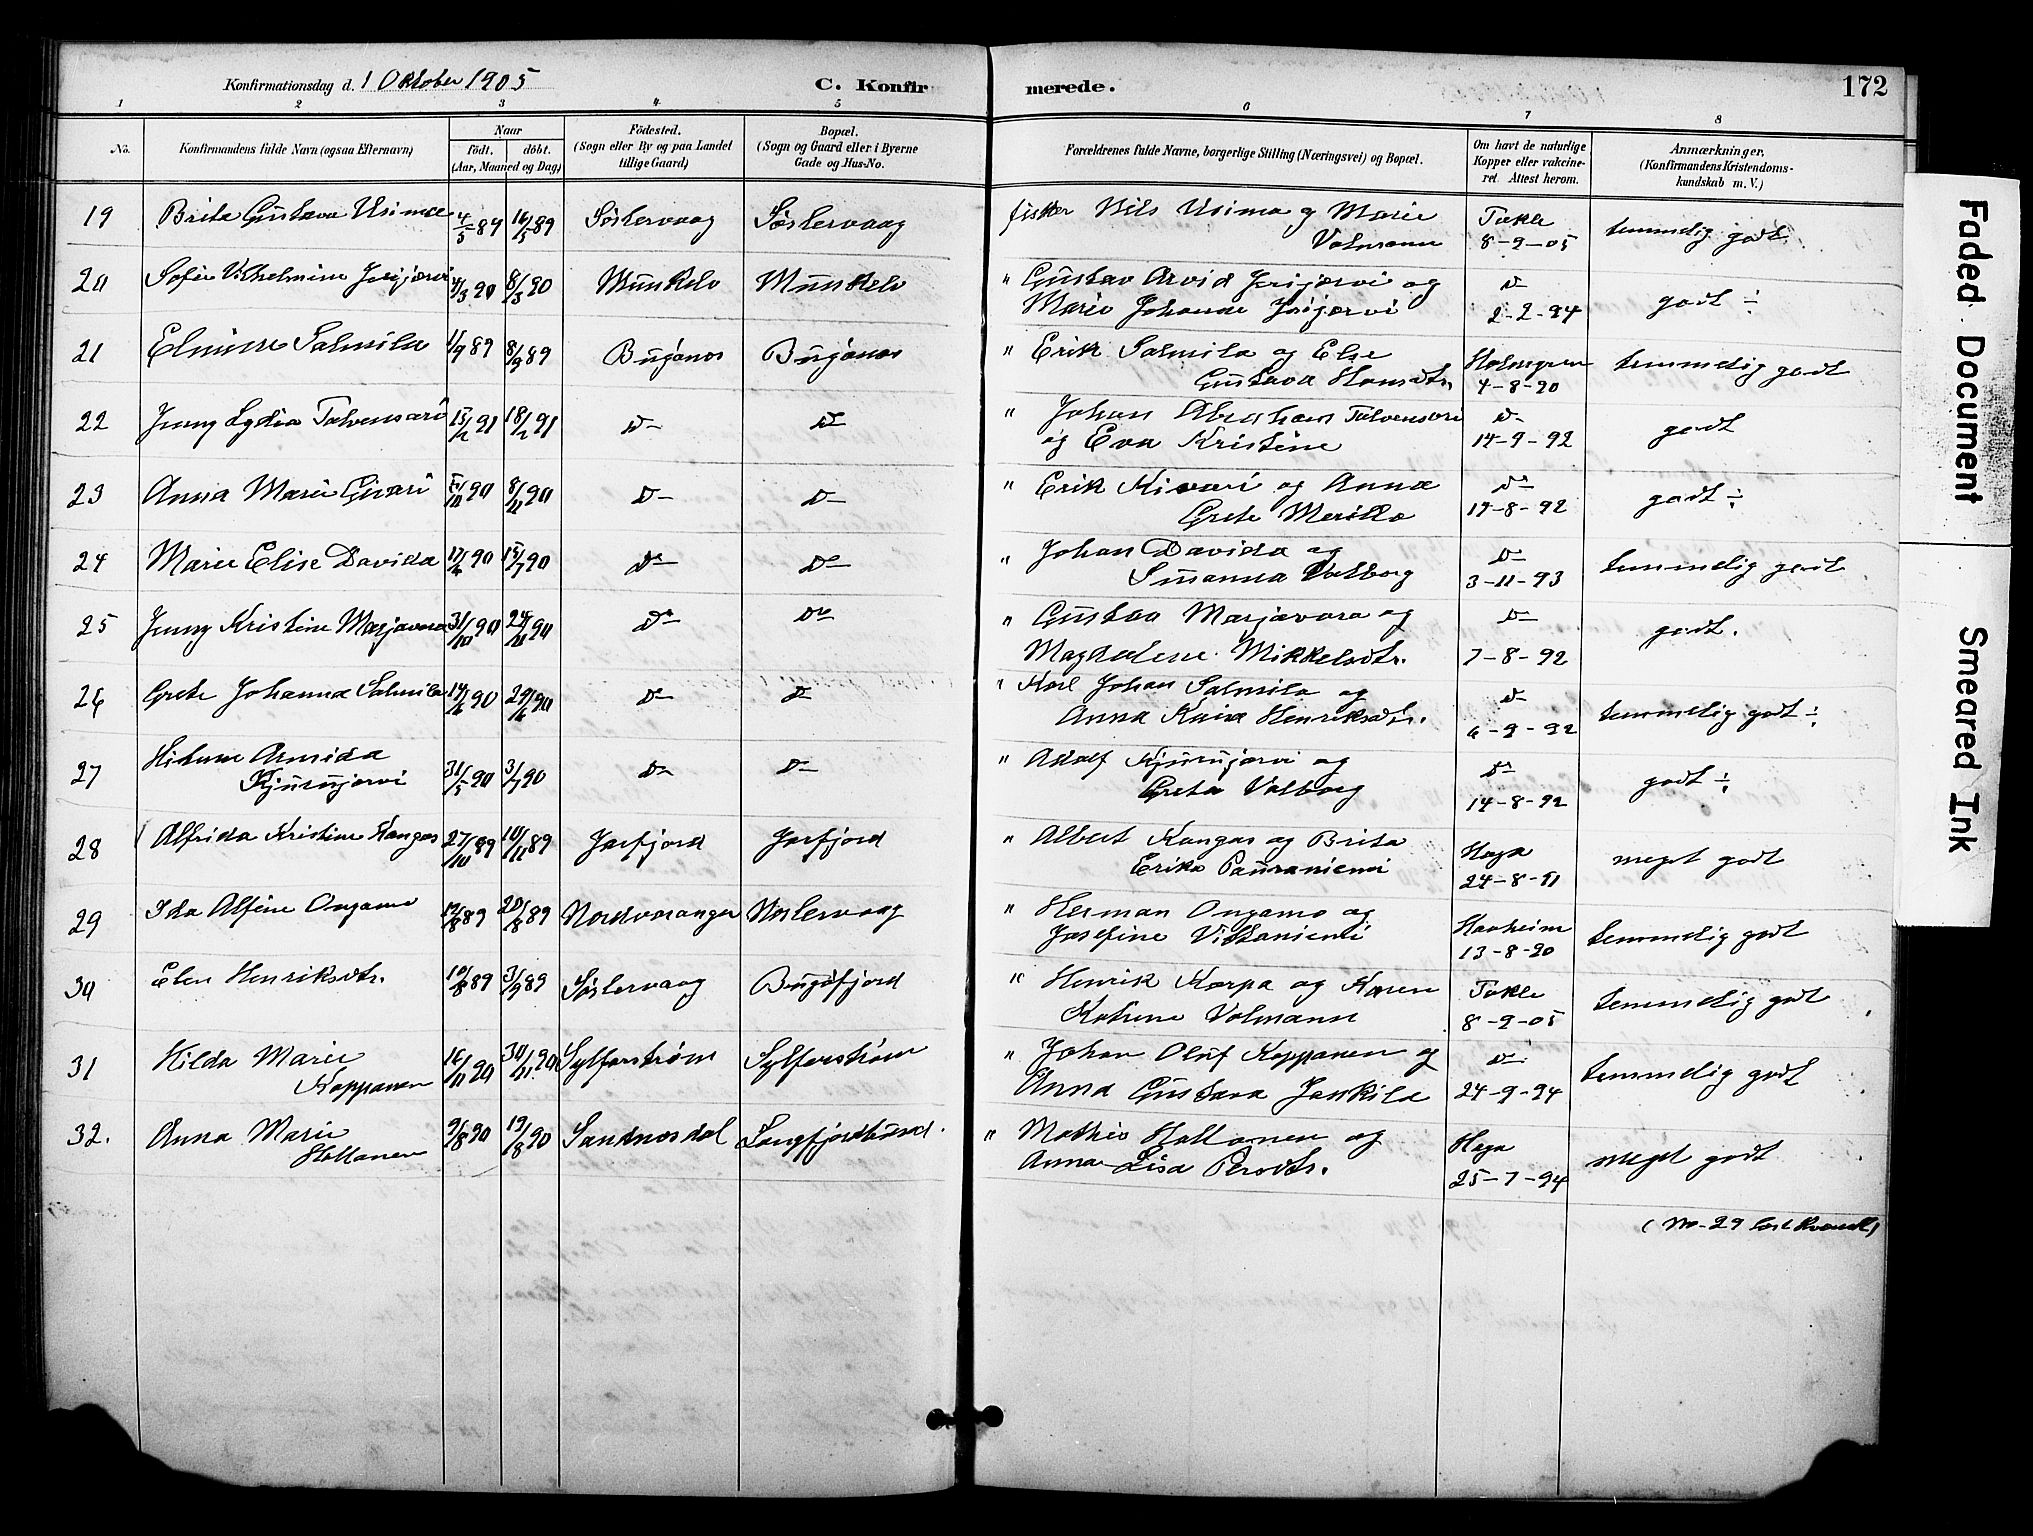 Konfirmationsdag d. 1 Oktober 1905
C. Konfirmerede.
172
1 2 3 4 5 6 7 8
No.
Konfirmandens fulde Navn (ogsaa Efternavn)
Naar
Födt. döbt.
(Aar, Maaned og Dag)
Födested.
(Sogn eller By og paa Landet
tillige Gaard)
Bopæl.
(Sogn og Gaard eller i Byerne
Gade og Hus-No.
Forældrenes fulde Navne, borgerlige Stilling (Næringsvei) og Bopæl.
Om havt de naturlige
Kopper eller vakcine-
ret. Attest herom.
Anmærkninger,
(Konfirmandens Kristendoms-
kundskab m. V.)
19 Brita Gustava Usima 4/5 89 16/5 89 fisker Nils Usima og Marie
Volmann
Takle
8-9-05
temmelig godt
20 Sofie Vilhelmine 4/3 90 8/3 90 Munkelv Munkelv " Gustav Arvid og
Marie Johanne
D
2-2-94
godt ÷
21 Salmila 1/9 89 8/9 89 Bugönes Bugönes " Erik Salmila og Else
Gustava Hansdtr.
Holmgren
4-8-90
temmelig godt
22 Jenny Lydia Talvensari 18/2 91 D D " Johan Abraham Talvensari
og Eva Kristine
D
14-9-92
godt
23 Anna Marie 8/11 90 D D " Erik Kivari og Anna
Grete
D
19-8-92
godt ÷
24 Marie Elise Davida 17/6 90 15/7 90 D D " Johan Davida og
Susanna Valborg
D
3-11-93
temmelig godt
25 Jenny Kristine Marjavara 31/10 90 24/11 90 D D " Gustav Marjavara og
Magdalene Mikkelsdtr.
D
7-8-92
godt.
26 Grete Johanna Salmila 14/6 90 29/6 90 D D " Karl Johan Salmila og
Anna Kaisa Henriksdtr.
D
6-9-92
temmelig godt ÷
27
31/5 90 3/7 90 D D " Adolf og
Greta Valborg
D
14-8-92
godt ÷
28 Alfrida Kristine Kangas 27/10 89 10/11 89 Jarfjord Jarfjord " Albert Kangas og Brita
Erika Pauraniemi
Haga
24-8-91
meget godt
29 Ida Alfine Ongamo 20/8 89 Nordvaranger " Herman Ongamo og
Josefine
Havheim
13-8-90
temmelig godt
30 Elen Henriksdtr. 19/8 89 3/9 89 Bugöfjord " Henrik Karpa og Karen
Katrine Volmann
Takle
8-9-05
temmelig godt
31 Hilda Marie
Koppanen
16/11 90 30/11 90 Sylferström Sylferström " Johan Oluf Koppanen og
Anna Gustava Jankila
D
24-9-94
temmelig godt
32. Anna Marie
Hottanen
9/8 90 19/8 90 Sandnesdal Langfjordbund. " Mathis Hottanen og
Anna Lisa Persdtr.
Haga
25-7-94
meget godt
(No-29
Faded Document
Smeared Ink